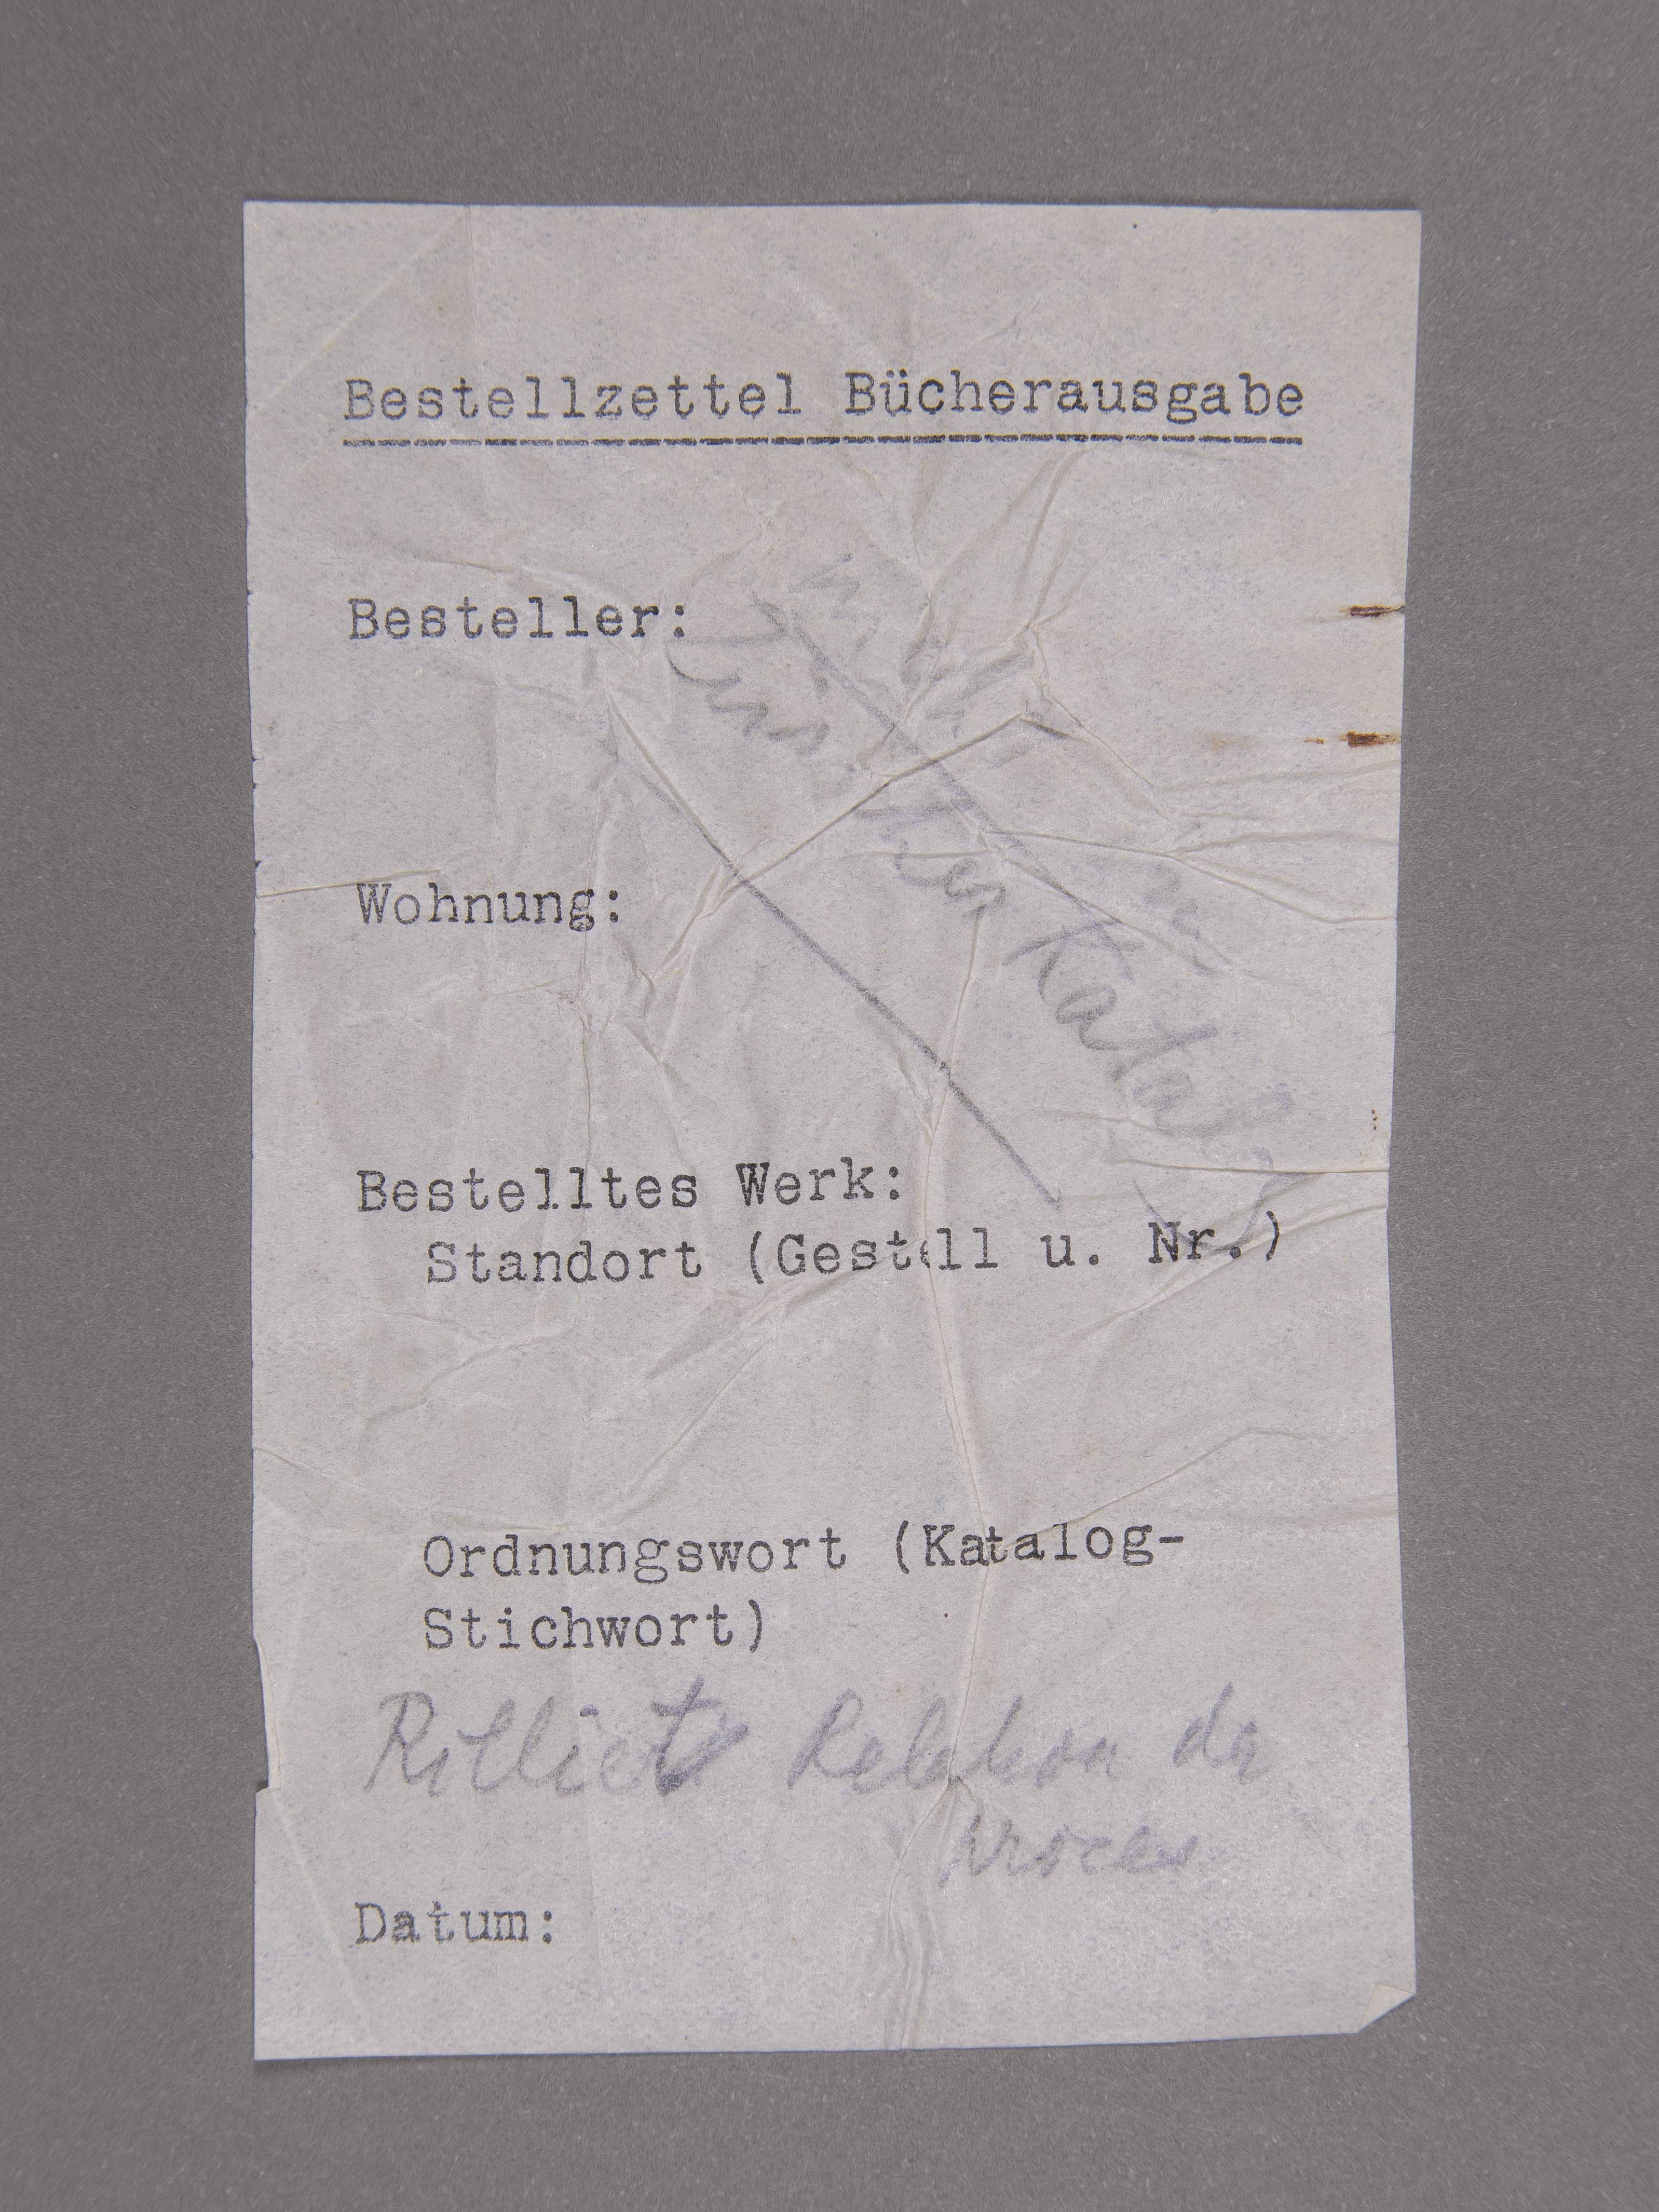 Bestellzettel Bücherausgabe
Besteller:
Wohnung:
Katalog
Bestelltes Werk:
Standort (Gestell u. Nr.)
Ordnungswort (Katalog-
Stichwort)
Rilliet Relation du
procès
Datum: